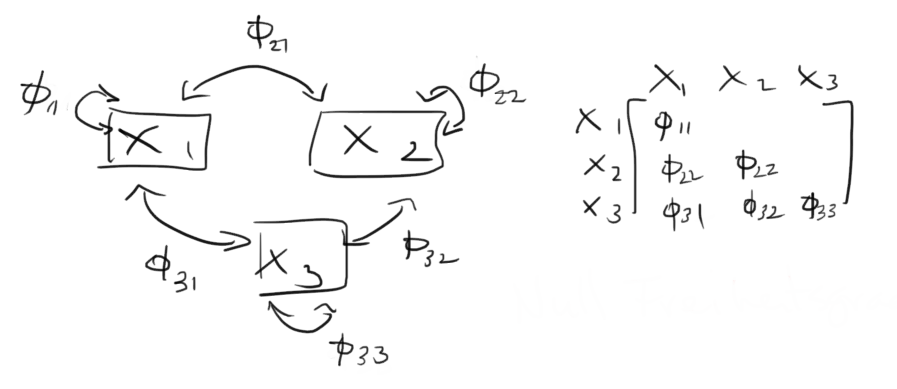 ϕ21
ϕ1
ϕ22
X1
X2
ϕ31
X3
ϕ32
ϕ33
X1 X2 X3
X1 ϕ11
X2 ϕ22 ϕ22
X3 ϕ31 ϕ32 ϕ33